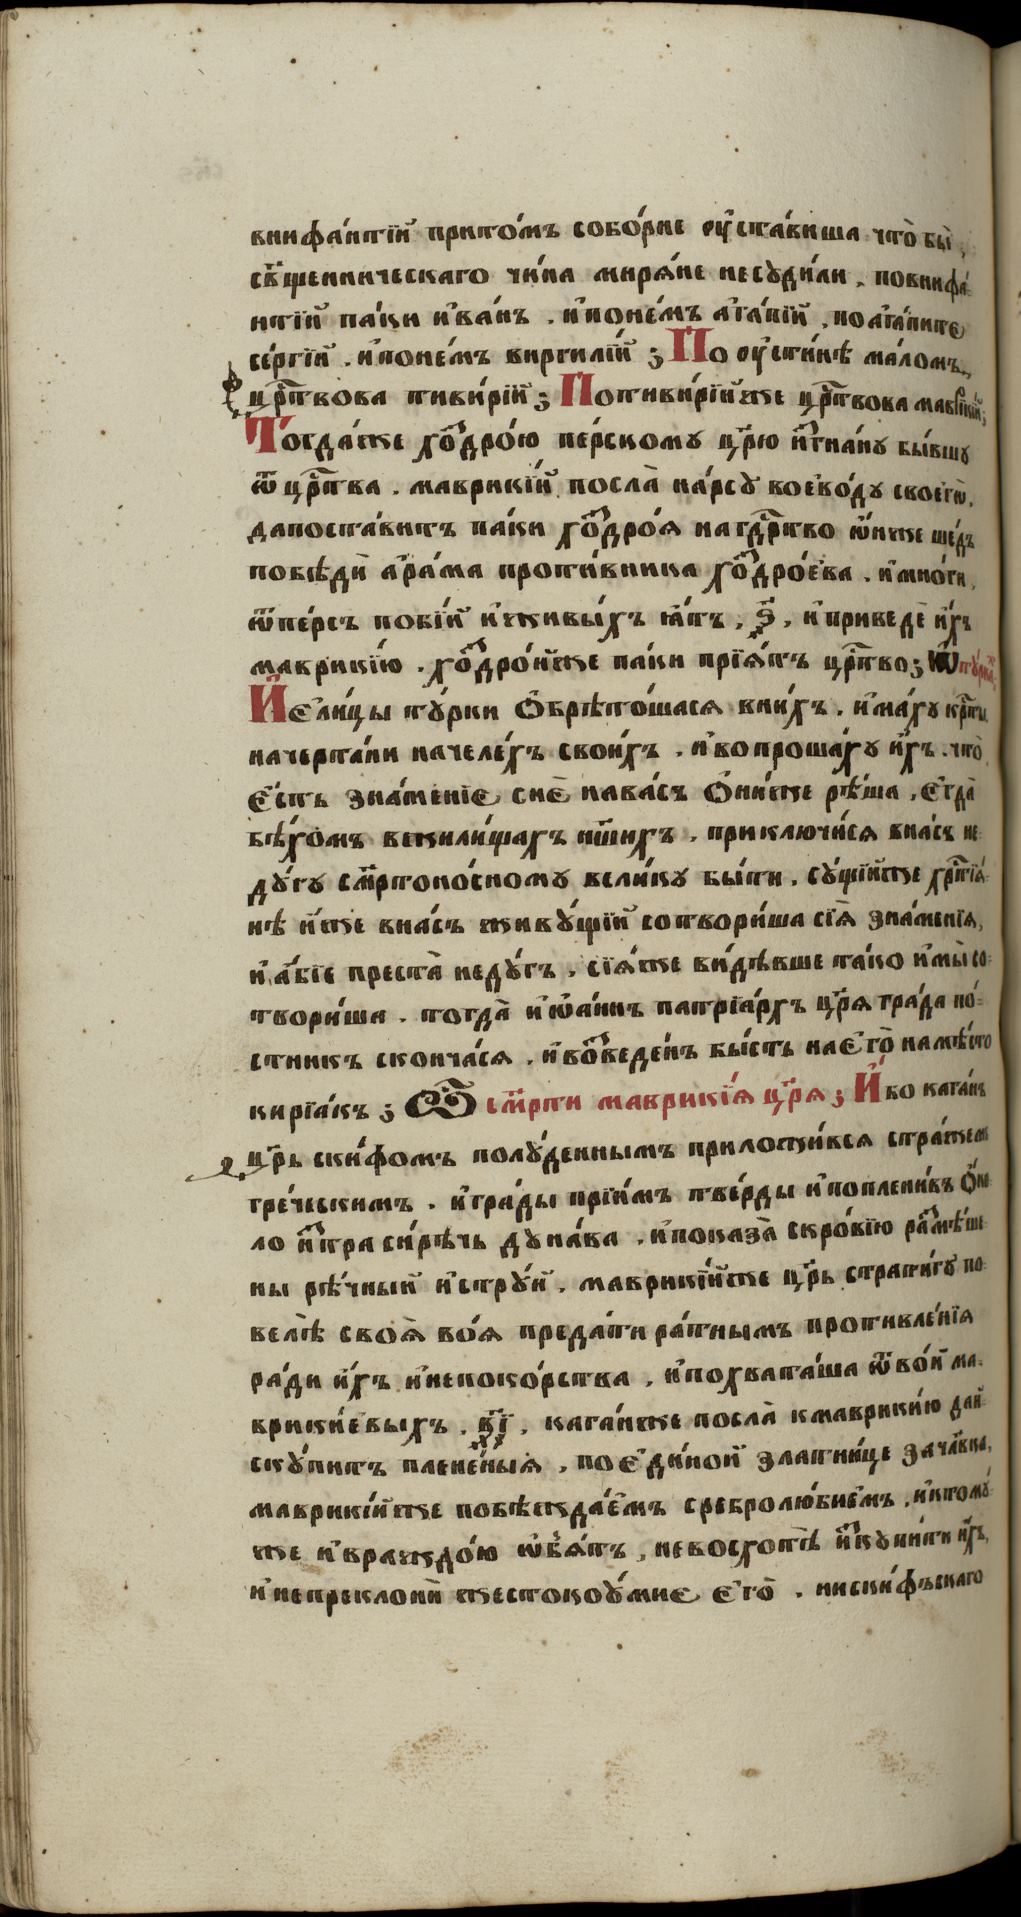 внифа́нтїй притѡ́мъ собо́рне оу҆ста́виша что̀ бы̀,
сщ҃е́нническаго чи́на миря́не несуди́ли. повнифа́
нтїй па́ки и҆ва́нъ. и҆понє́мъ а҆га́пїй. поа҆га́пите
се́ргїй. и҆понє́мъ виргилі́й ; По оу҆сти́нѣ ма́ломъ
цр҃твова тиви́рїй ; Потиви́рїйже цр҃твова маврикі́й ;
Тогда́же хоздро́ю пе́рскому цр҃ю и҆згна́ну бы́вшу
ѿ цр҃тва. маврикі́й посла̀ на́рсу воево́ду своего̀,
дапоста́витъ па́ки хоздро́ѧ на гдр҃тво ѻ҆́нже ше́дъ
побѣдѝ а҆ра́ма проти́вника хоздро́ева. и҆мно́ги,
ѿпе́рсъ поби́й и҆живы́хъ ꙗ҆́тъ, ҂ѕ҃, и҆ приведѐ и҆́хъ
маврикі́ю. хоздро́йже па́ки прїѧ́тъ цр҃тво ; Ѡ ту́рках
И҆ є҆ли́цы ту́рки ѻ҆брѣто́шасѧ вни́хъ. и҆ма́ху крⷭ҇ты
начерта́ни начеле́хъ свои́хъ. и҆вопроша́ху и҆́хъ. что̀
є҆́сть зна́менїє сиѐ нава́съ ѻ҆ни́же рѣ́ша, є҆гда̀
бѣ́хомъ вжили́щахъ на́шихъ. приключи́сѧ вна́съ не
ду́гу смр҃тоно́сному вели́ку бы́ти. су́щїйже хрⷭ҇тїѧ́
нѣ и҆́же вна́съ живу́щїй сотвори́ша сїѧ̀ зна́менїѧ,
и҆ а҆́бїе преста̀ неду́гъ. сїѧ́же ви́дѣвше та́ко и҆мы̀ со
твори́ша. тогда̀ и҆ѡ҆а́ннъ патрїа́рхъ цр҃ѧ гра́да по́
стникъ сконча́сѧ. и҆возведе́нъ бы́сть нає҆го̀ намѣ́сто
кирїа́къ ; Ѡ сме́рти маврикі́ѧ цр҃ѧ ; И҆ бо кага́нъ
цр҃ь ски́ѳомъ полу́деннымъ приложи́всѧ стра́жемъ
гре́ческимъ. и҆гра́ды прїи́мъ тве́рды и҆поплени́въ ѻ҆́ко
ло и҆́стра си́рѣчь дуна́ва. и҆показа̀ скро́вїю размѣ́ше
ны рѣ́чный и҆стру́й. маврикі́йже цр҃ь страти́гу по
велѣ̀ своѧ̀ во́ѧ преда́ти ра́тнымъ противле́нїѧ
ра́ди и҆́хъ и҆непоко́рства. и҆похвата́ша ѿво́й ма
врикі́евыхъ. ҂в҃і. кага́нже посла̀ кмаврикі́ю дай
ску́питъ плене́ныѧ. по є҆ди́ной злат́ни́це зачл҃вка,
маврикі́йже побѣжда́емъ сребролю́биемъ. и҆ктому́
же и҆враждо́ю ѡ҆б̾ѧ́тъ, невосхотѣ̀ и҆скупи́ти и҆́хъ,
и҆ непреклонѝ жестокоу́мие є҆го̀. ниски́ѳьскаго